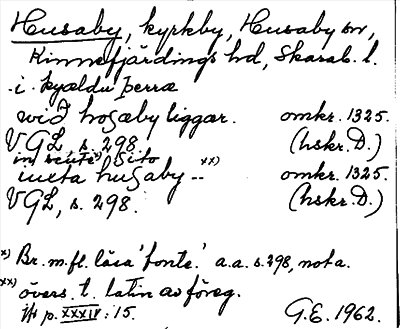 Husaby, kyrkby, Husaby sn,
Kinnefjärdings hd, Skarab. l.
i kyældu þerræ
wið hoʒæby liggær. omkr. 1325.
VGL, s. 298. (hskr. D.)
in scute x) sito
iuxta huʒaby -- xx) omkr. 1325.
VGL, s. 298. (hskr. D.)
x) Br. m.fl. läsa 'fonte.' a.a. s. 298, nota.
xx) övers. t. latin av föreg.
jfr p. XXXIV : 15. G.E. 1962.